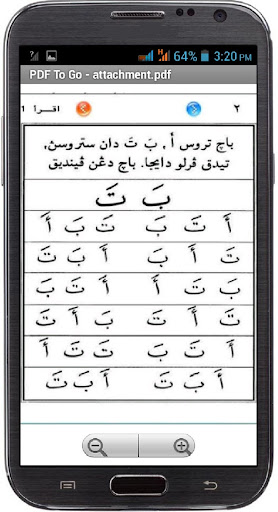 64% 3:20 PM
PDF To Go - attachment.pdf
٢ اقرأ 1
باچ تروس أ , بَ تَ دان ستروسڽ,
تيدق ڤرلو دايجا. باچ دڠن ڤينديق
بَ تَ
أَ تَ بَ بَ تَ أَ
تَ أَ بَ أَ بَ تَ
بَ أَ تَ أَ تَ بَ
تَ أَ بَ بَ تَ أَ
أَ أَ بَ تَ تَ أَ
أَ بَ تَ أَ بَ تَ